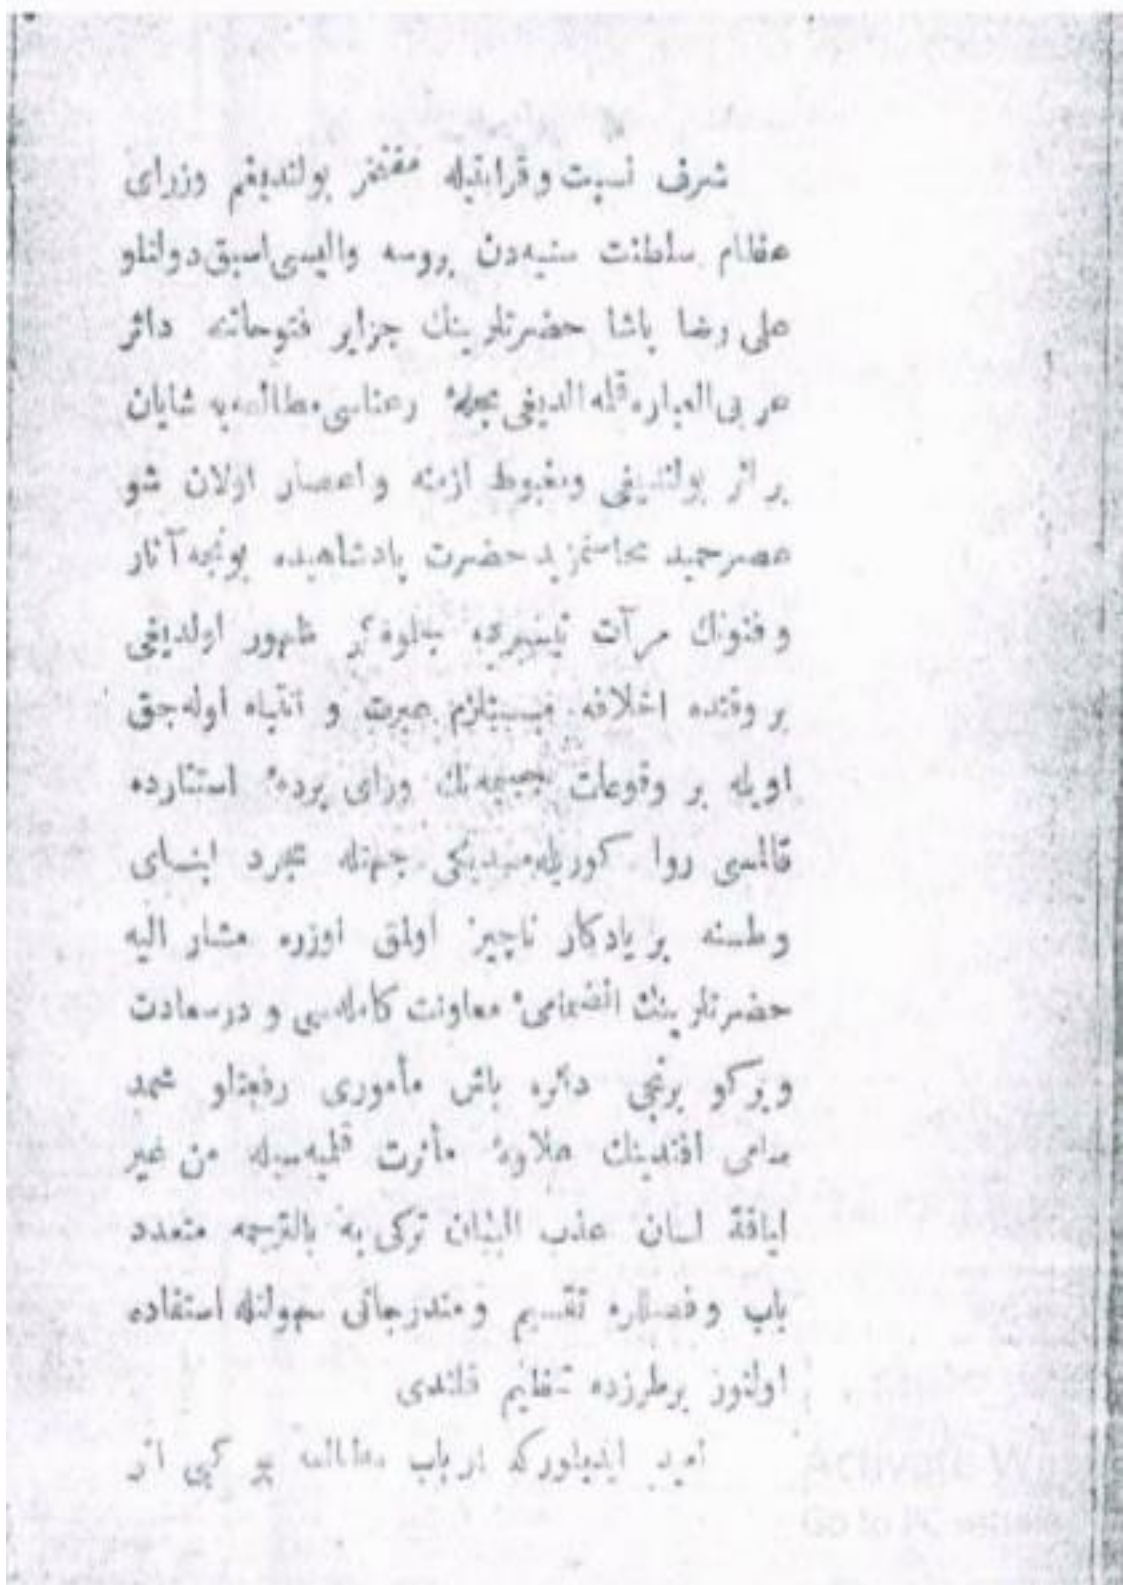 شرف نسبت و قرابتیله مفتخر بولندیغم وزرای
عظام سلطنت سنیه‌دن بروسه والیسی اسبق دولتلو
علی رضا پاشا حضرتلرینك جزایر فتوحاتنه دائر
عربی العباره قلمه الدیغی مجلهٔ رعناسی مطالعه‌یه شایان
بر اثر بولندیغی ومغبوط ازمنه و اعصار اولان شو
عصر حمید محاسنمزید حضرت پادشاهیده بونجه آثار
و فنونك مرآت جلوه‌گر ظهور اولدیغی
بر وقتده اخلافه عبرت و انتباه اوله‌جق
اویله بر وقوعات جسیمه‌نك ورای پردهٔ استتارده
قالمسی روا كوریله‌مدیكی جهتله مجرد ابنای
وطنه بر یادكار ناچیز اولمق اوزره مشار الیه
حضرتلرینك انضمامیٔ معاونت كامله‌سی و درسعادت
ویركو برنجی دائره باش مأموری رفعتلو
افندینك علاوهٔ مأثرت قلمیه‌سیله من غیر
لیاقة لسان عذب البیان تركی‌یه بالترجمه متعدد
باب وفصللره تقسیم ومندرجاتی سهولتله استفاده
اولنور برطرزده تنظیم قلندی
امید ایدیلوركه ارباب مطالعه بو كبی اثر
Activate W
Go to PC settin